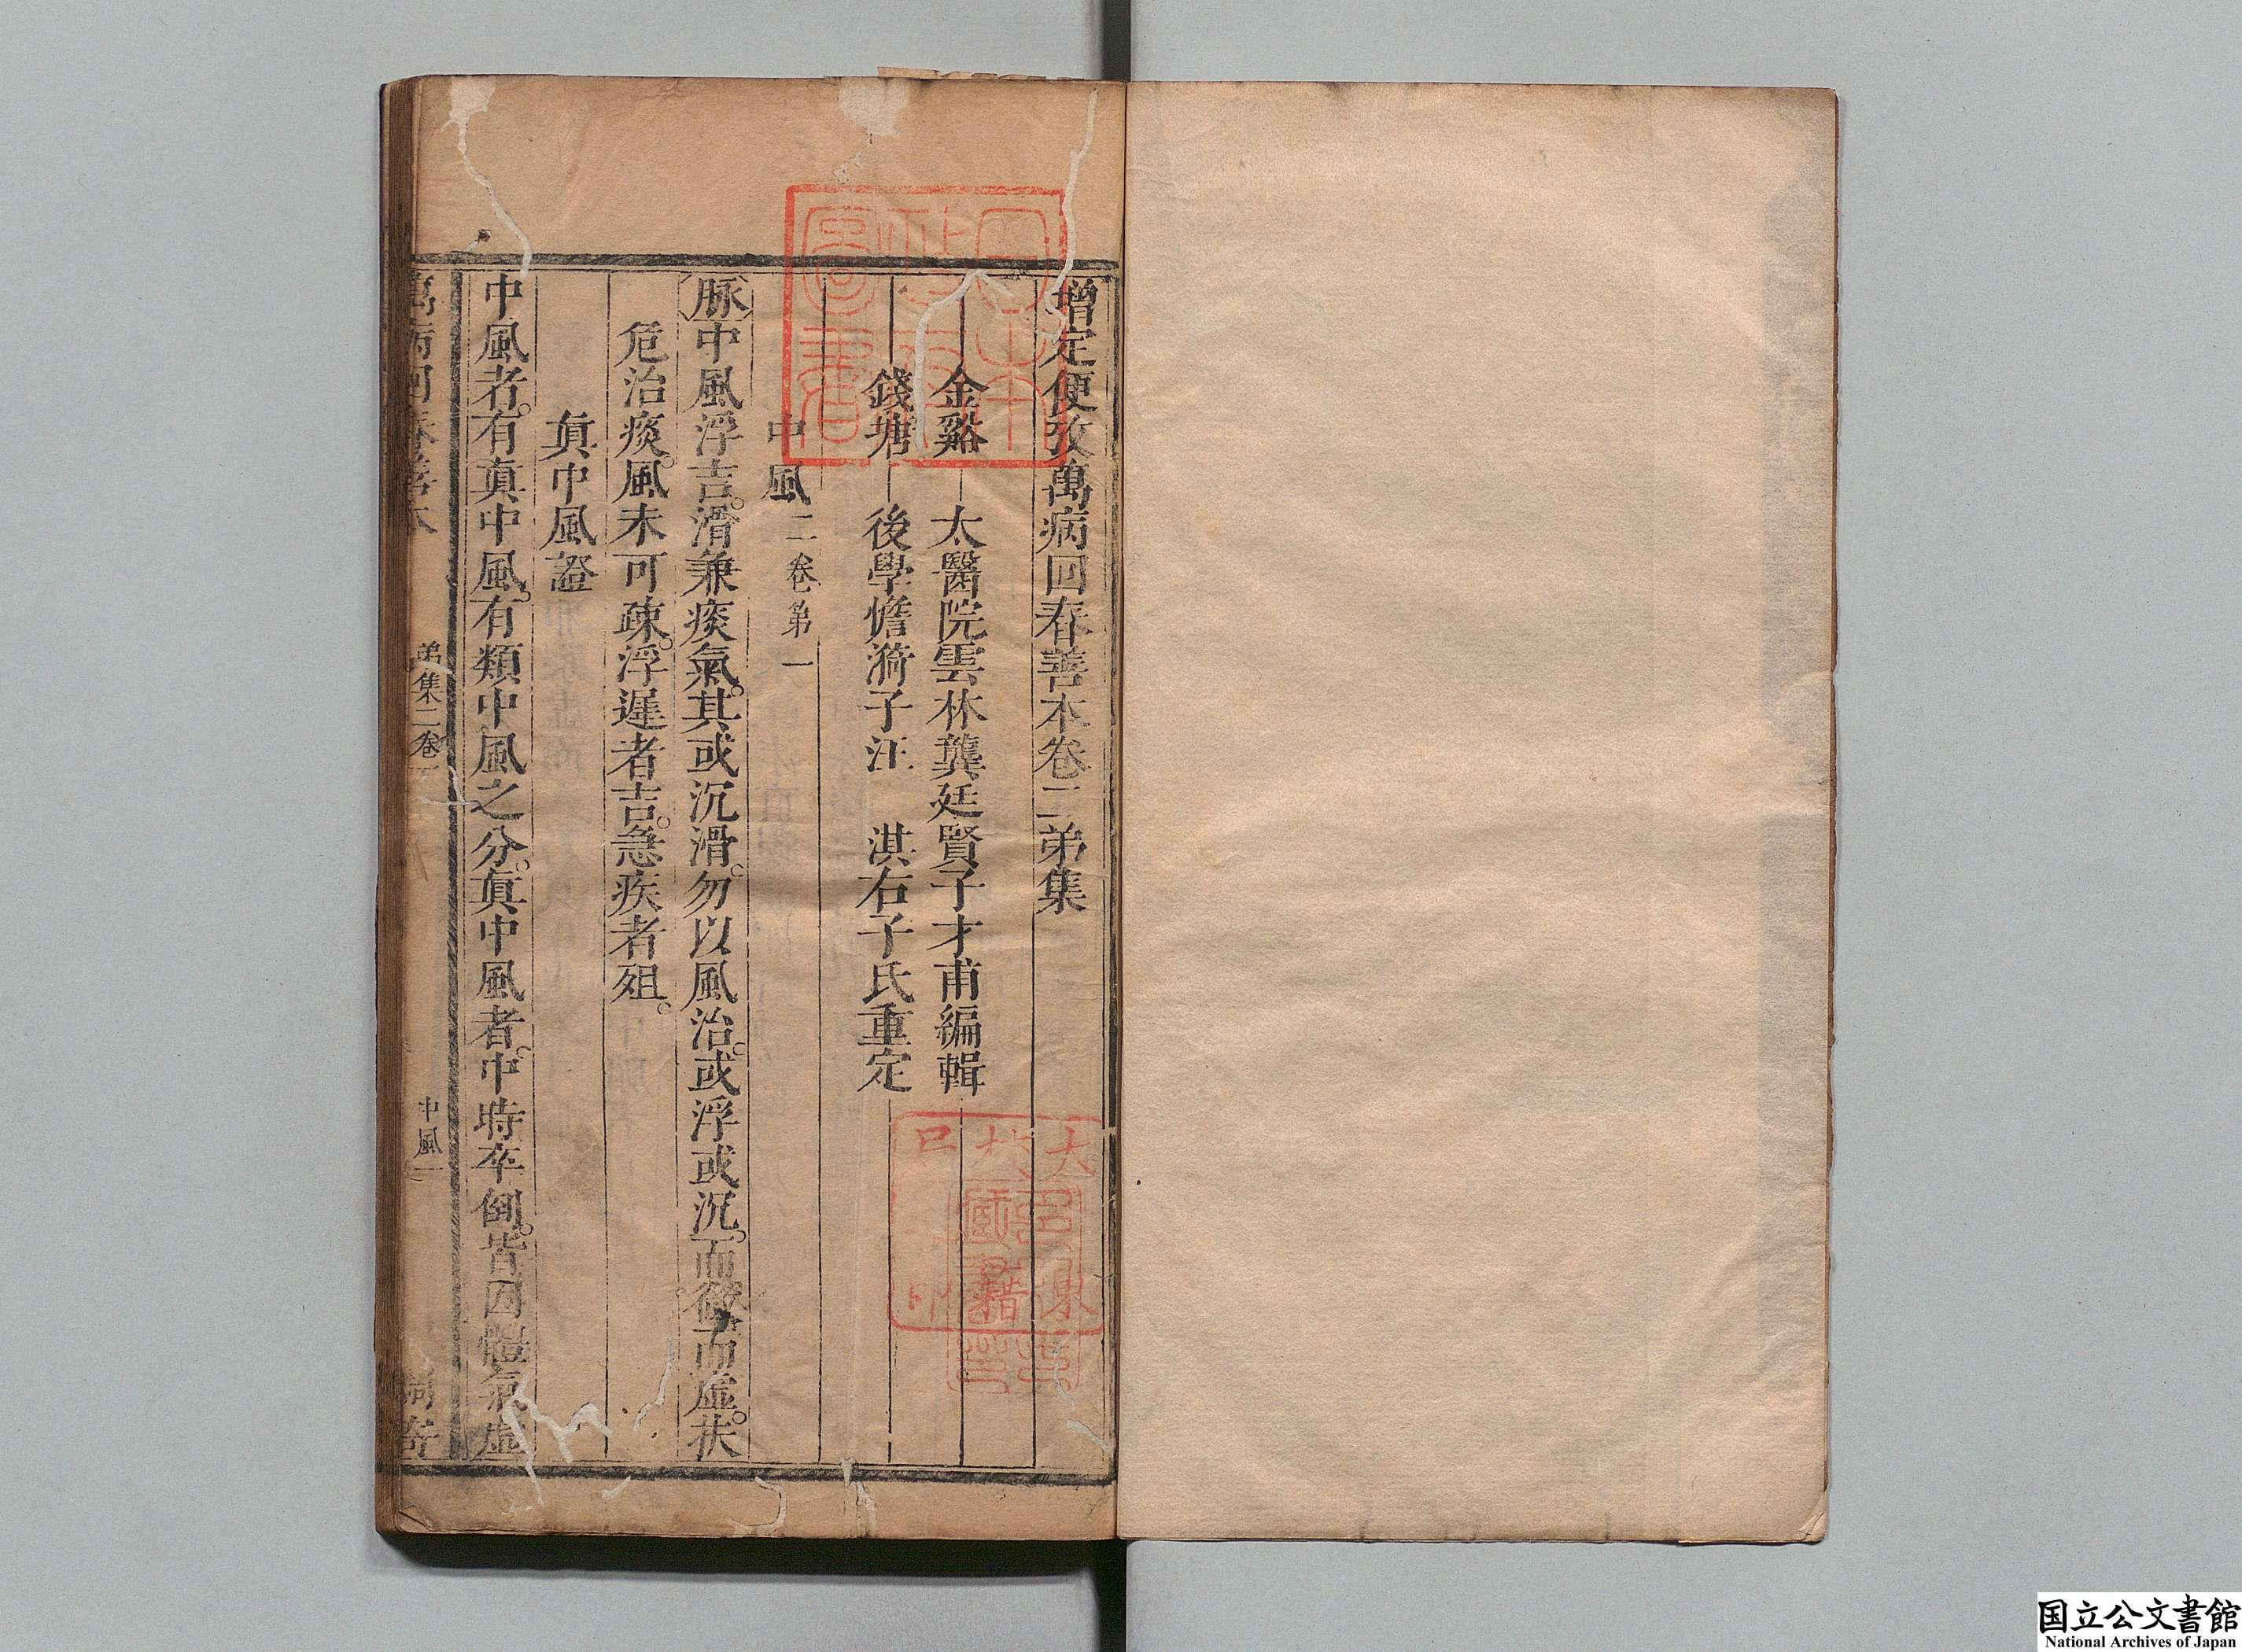 增定便攷萬病回春善本卷二弟集
金谿　太醫院雲林龔廷賢子才甫編輯
錢塘　後學憺漪子汪　淇右子氏重定
中風二卷第一
脉中風浮吉。滑兼痰氣。其或沉滑。勿以風治。或浮或沉。而微而虛。扶
危治痰。風未可疎。浮遲者吉。急疾者殂。
眞中風證
中風者。有眞中風。有類中風之分。眞中風者。中時卒倒。皆因體氣虛
萬病回春善本　弟集二卷　中風一
日本政府圖書
国立公文書館
National Archives of Japan